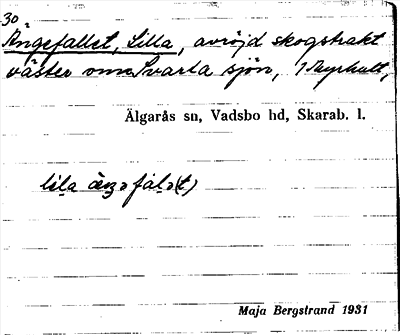 30
Ängefallet, Lilla, avröjd skogstrakt
väster om Svarta sjön, 1 Myrhult,
Älgarås sn, Vadsbo hd, Skarab. l.
Maja Bergstrand 1931